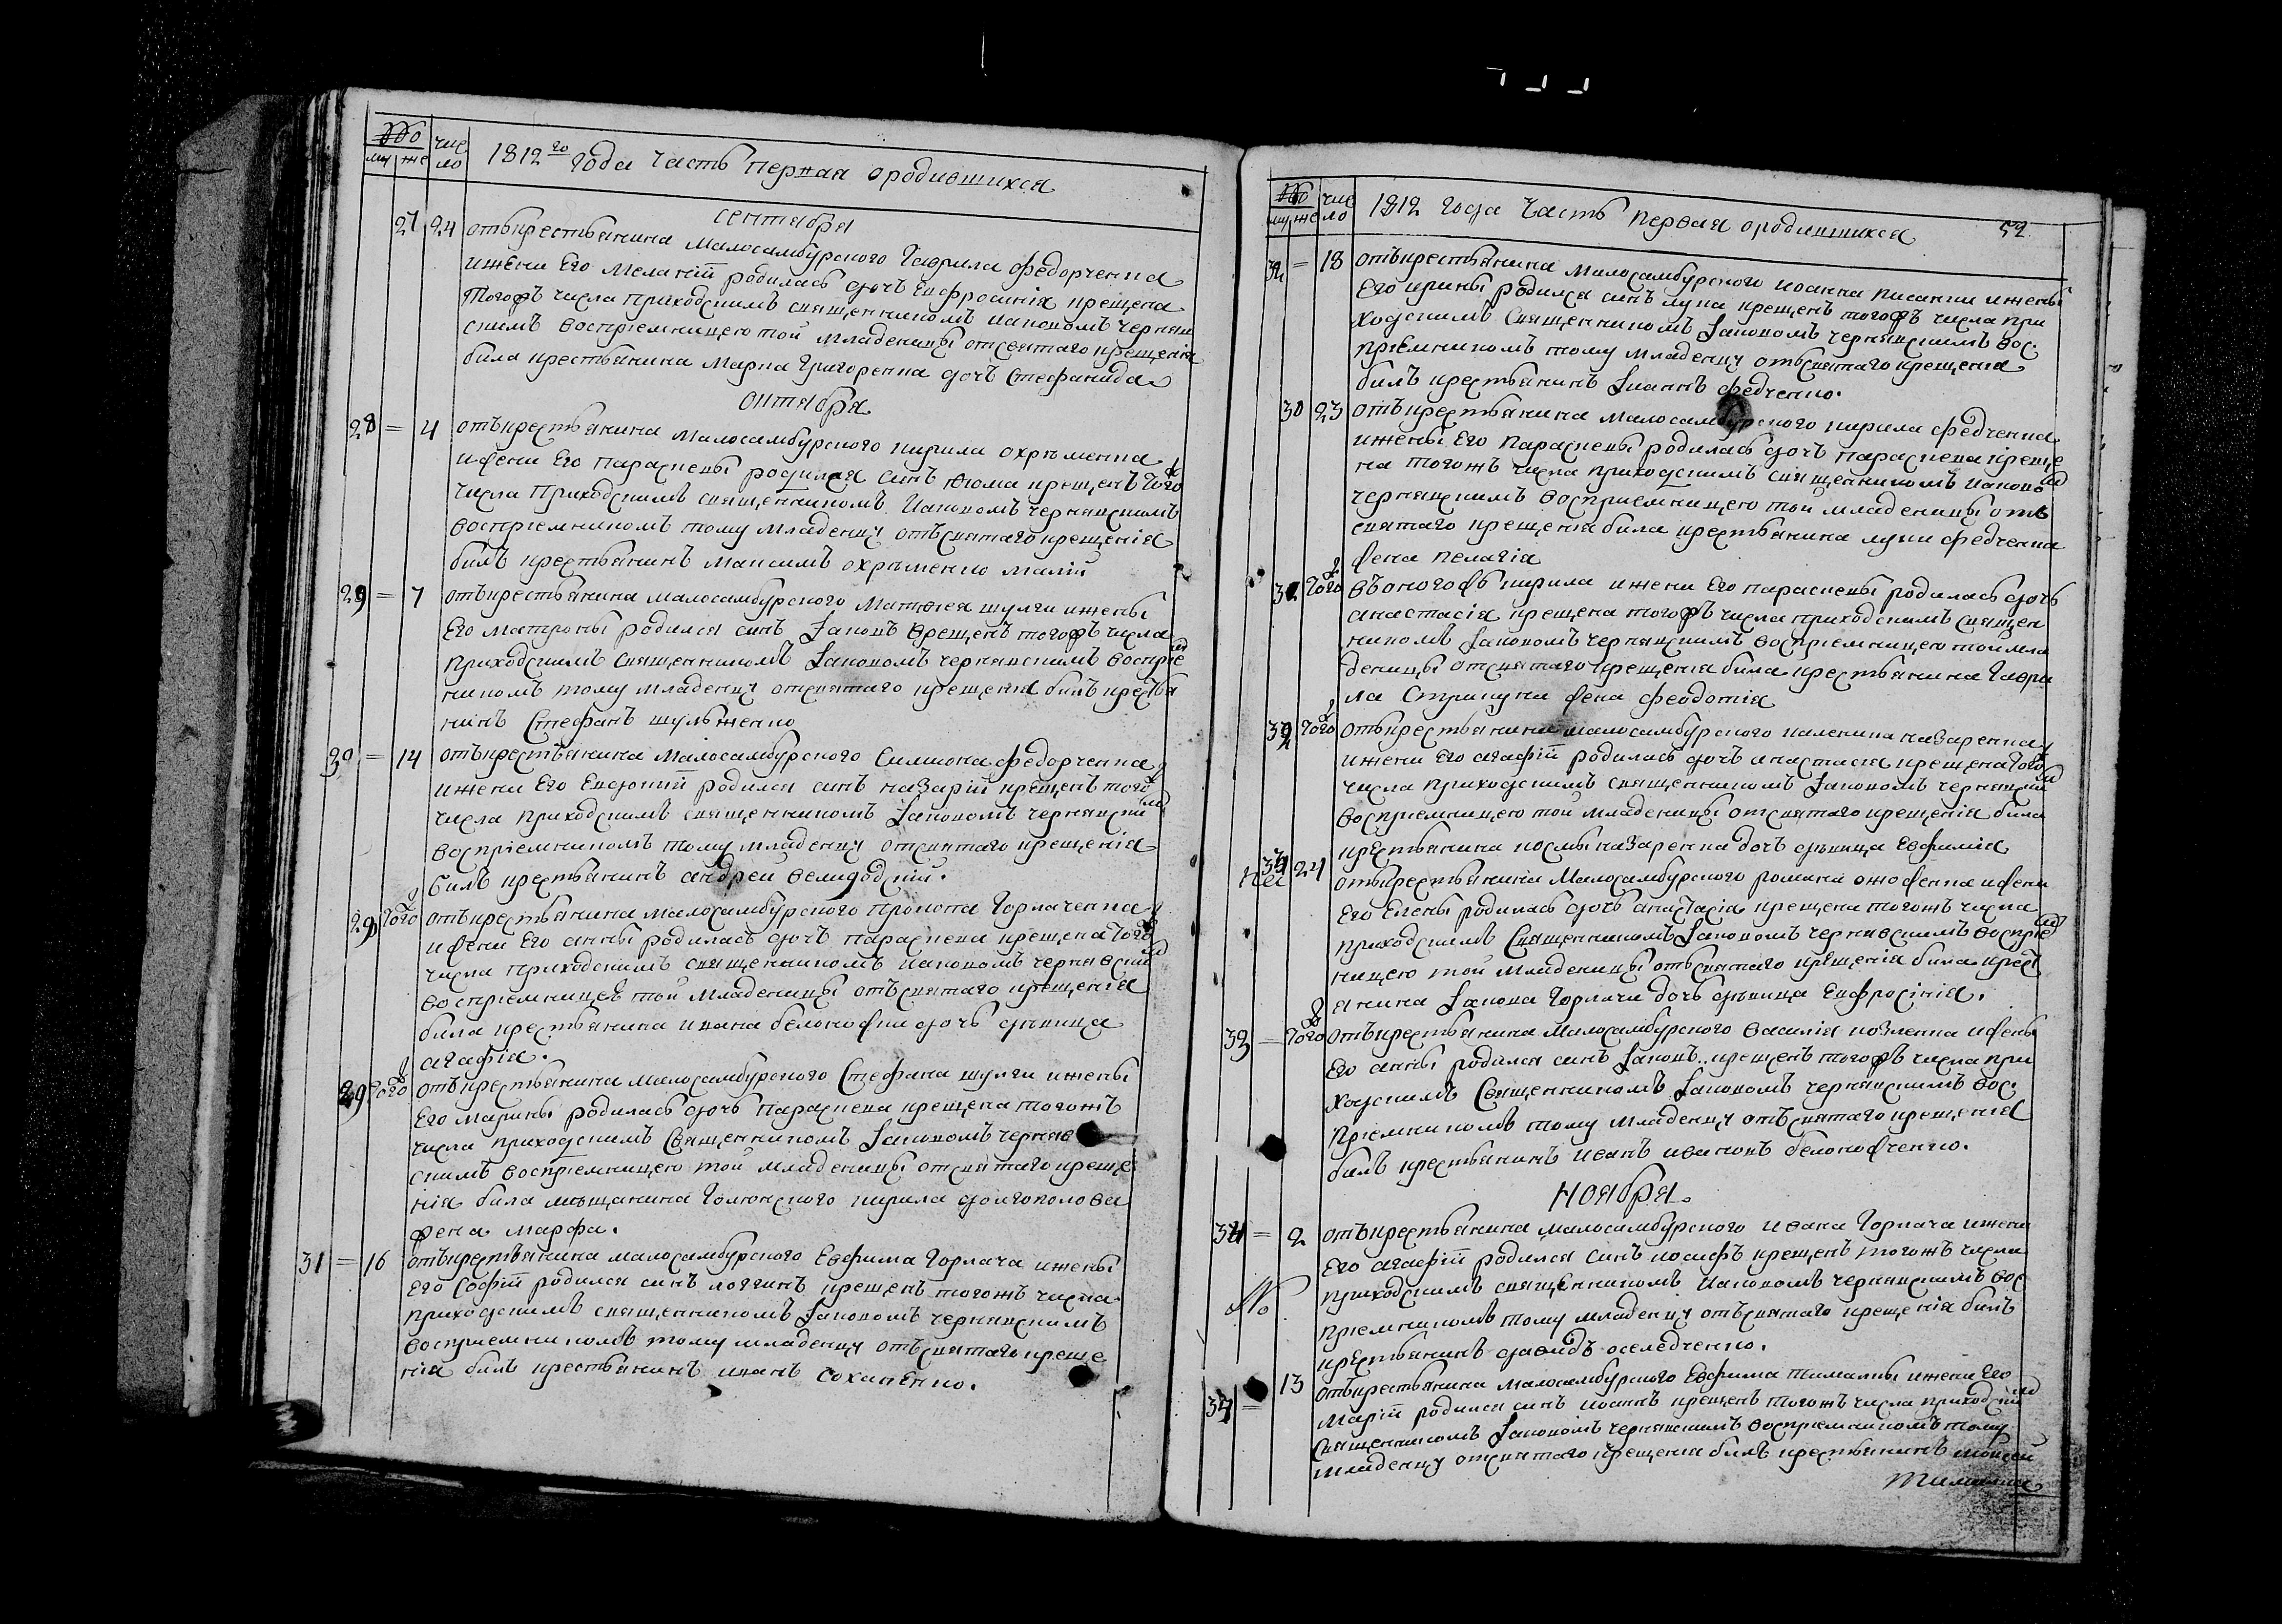 №
му же
чис
ло
1812го Года Часть первая ородившихся
сентября
27 24 отъкрестьянина Малосамбурского Гаврила Федорченка
ижени Его Меланiи родилась дочъ Евфросинiя крещена
тогожъ числа Приходскимъ священникомъ Иаковомъ черняв
скимъ восприемницею той Младеницы отсвятаго крещенiя
била крестьянина Марка Григоренка дочъ Стефанида
октября
28 = 4 отъкрестьянина Малосамбурского кирила охрѣменка
ижени Его Параскевы родился синъ Фома крещенъ Того ж
числа Приходскимъ священникомъ Иаковомъ чернявскимъ
восприемникомъ тому Младенцу отъсвятаго крещенiя
билъ крестьянинъ Максимъ охрѣменко малiй
29 = 7 отъкрестьянина малосамбурского Матвея шулги ижены
Его матроны родился синъ Iаковъ крещенъ тогожъ числа
приходскимъ священникомъ Iаковомъ чернявскимъ восприем
никомъ тому младенцу отсвятаго крещенiя билъ крестья
нинъ Стефанъ шулженко
30 = 14 отъкрестьянина Малосамбурского Симиона федорченка
ижени Его Евдокiи родился синъ назарiй крещенъ того ж
числа приходскимъ священникомъ Iаковомъ чернявским
восприемникомъ тому младенцу отсвятаго крещенiя
билъ крестьянинъ андрей великодский.
29 Того ж отъкрестьянина малосамбурского Прокопа Горлаченка
ижени Его анны родилась дочъ параскева крещена Того ж
числа приходскимъ священникомъ иаковомъ чернявским
восприемницею той младеницы отъсвятаго крещенiя
била крестьянина ивана белоножки дочъ девица
агафiя.
Того ж отъкрестьянина малосамбурского Стефана шулги ижены
Его марины родилась дочъ параскева крещена тогожъ
числа приходскимъ Священникомъ Iаковомъ черняв
скимъ восприемницею той младеницы отсвятаго креще
нiя била мещанина Голинского кирила долгополова
жена марфа.
31 = 16 отъкрестьянина малосамбурского Евфима Горлача ижены
Его Софiи родился синъ логгинъ крещенъ тогожъ числа
приходскимъ священникомъ Iаковомъ чернявскимъ
восприемникомъ тому младенцу отъсвятаго креще
нiя билъ крестьянинъ иванъ сохаценко.
№
му же
чис
ло
1812 года Часть Первая ородившихся
52
32 = 18 отъкрестьянина Малосамбурского иоанна писанки ижены
Его ирины родился синъ лука крещенъ тогожъ числа при
ходскимъ Священникомъ Iаковомъ чернявскимъ вос
приемникомъ тому младенцу отъсвятаго крещенiя
билъ крестьянинъ Iоаннъ федченко.
30 23 отъкрестьянина малосамбурского кирила федченка
ижены Его Параскевы родилась дочъ параскева креще
на тогожъ числа приходскимъ священникомъ иаковом
чернявскимъ восприемницею той младеницы отъ
святаго крещенiя била крестьянина луки федченка
жена пелагiя
Того ж отъоногожъ кирила ижени Его параскевы родилась дочъ
анастасiя крещена тогожъ числа приходскимъ священ
никомъ Iаковомъ чернявскимъ восприемницею той мла
деницы отсвятаго крещенiя била крестьянина Гаври
ла Стрикуна жена феодотiя
32 Того ж отъкрестьянина малосамбурского назаренка
ижени Его агафiи родилась дочъ анастасiя крещена Того ж
числа приходскимъ священникомъ Iаковомъ чернявским
восприемницею той младеницы отсвятаго крещенiя била
крестьянина космы назаренка дочъ девица Евфимiя
24 отъкрестьянина Малосамбурского романа ижени
Его Елены родилась дочъ анастасiя крещена тогожъ числа
приходскимъ Священникомъ Iаковомъ чернявскимъ восприем
ницею той младеницы отъсвятаго крещенiя била крест
янина Iакова Горлача дочъ девица Евфросiнiя.
33 = Того ж отъкрестьянина Малосамбурского василiя козленка ижены
Его анны родился синъ Iаковъ крещенъ тогожъ числа при
ходскимъ Священникомъ Iаковомъ чернявскимъ вос
приемникомъ тому младенцу отъсвятаго крещенiя
билъ крестьянинъ иванъ ивановъ белоножченко.
Ноября.
34 = 2 отъкрестьянина малосамбурского ивана Горлача ижени
Его агафiи родился синъ иосифъ крещенъ тогожъ числа
приходскимъ священникомъ Иаковомъ чернявскимъ вос
приемникомъ тому младенцу отъсвятаго крещенiя билъ
крестьянинъ давидъ оселедченко.
13 отъкрестьянина малосамбурского Евфима ижени Его
Марiи родился синъ иоаннъ крещенъ тогожъ числа приходским
Священникомъ Iаковомъ чернявскимъ восприемникомъ тому
младенцу отсвятаго крещенiя билъ крестьянинъ